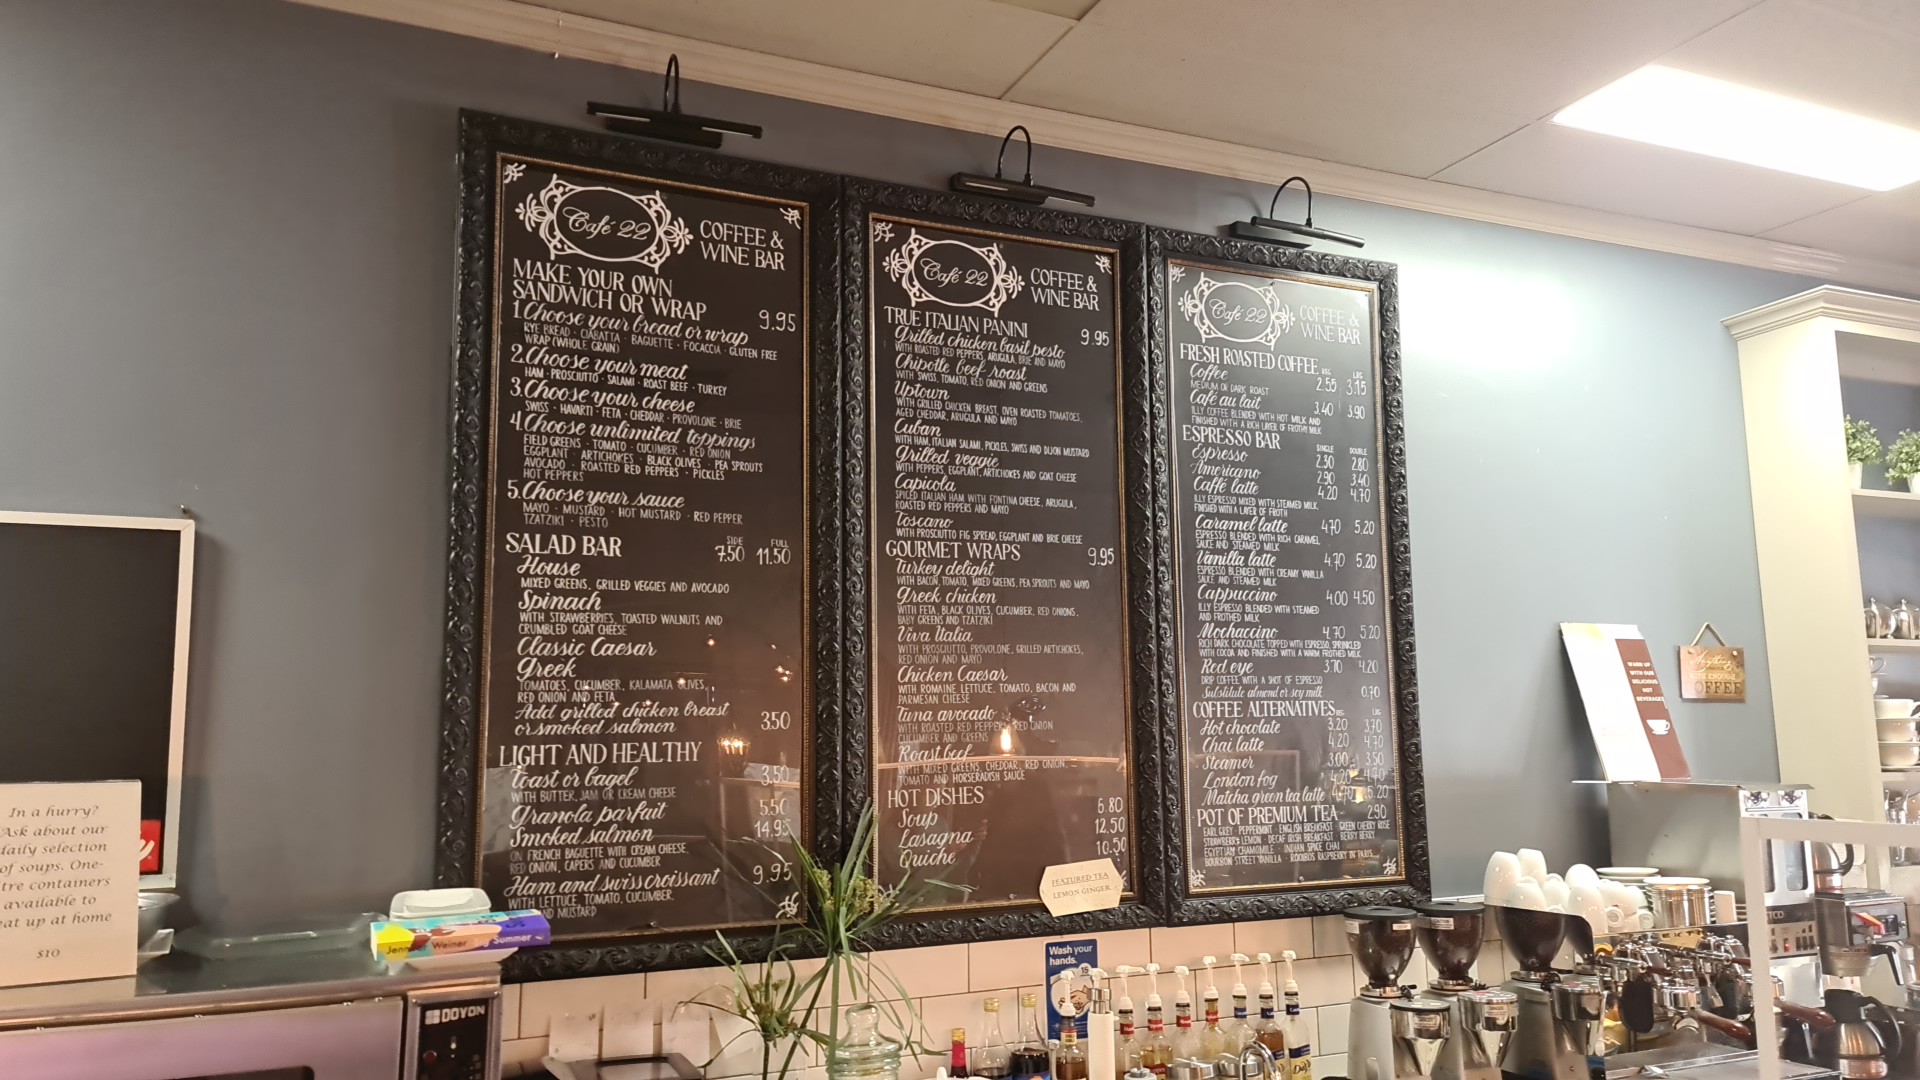 Café 22
COFFEE &
WINE BAR
MAKE YOUR OWN
SANDWICH OR WRAP 9.95
1. Choose your bread or wrap
RYE BREAD · CIABATTA · BAGUETTE · FOCACCIA · GLUTEN FREE
WRAP (WHOLE GRAIN)
2. Choose your meat
HAM · PROSCIUTTO · SALAMI · ROAST BEEF · TURKEY
3. Choose your cheese
SWISS · HAVARTI · FETA · CHEDDAR · PROVOLONE · BRIE
4. Choose unlimited toppings
FIELD GREENS · TOMATO · CUCUMBER · RED ONION
EGGPLANT · ARTICHOKES · BLACK OLIVES · PEA SPROUTS
AVOCADO · ROASTED RED PEPPERS · PICKLES
HOT PEPPERS
5. Choose your sauce
MAYO · MUSTARD · HOT MUSTARD · RED PEPPER
TZATZIKI · PESTO
SALAD BAR SIDE 7.50 FULL 11.50
House
MIXED GREENS, GRILLED VEGGIES AND AVOCADO
Spinach
WITH STRAWBERRIES, TOASTED WALNUTS AND
CRUMBLED GOAT CHEESE
Classic Caesar
Greek
TOMATOES, CUCUMBER, KALAMATA OLIVES,
RED ONION AND FETA
Add grilled chicken breast
or smoked salmon 3.50
LIGHT AND HEALTHY
Toast or bagel 3.50
WITH BUTTER, JAM OR CREAM CHEESE
Granola parfait 5.50
Smoked salmon 14.95
ON FRENCH BAGUETTE WITH CREAM CHEESE,
RED ONION, CAPERS AND CUCUMBER
Ham and swiss croissant 9.95
WITH LETTUCE, TOMATO, CUCUMBER,
AND MUSTARD
Café 22
COFFEE &
WINE BAR
TRUE ITALIAN PANINI 9.95
Grilled chicken basil pesto
WITH ROASTED RED PEPPERS, ARUGULA, BRIE AND MAYO
Chipotle beef roast
WITH SWISS, TOMATO, RED ONION AND GREENS
Uptown
WITH GRILLED CHICKEN BREAST, OVEN ROASTED TOMATOES,
AGED CHEDDAR, ARUGULA AND MAYO
Cuban
WITH HAM, ITALIAN SALAMI, PICKLES, SWISS AND DIJON MUSTARD
Grilled veggie
WITH PEPPERS, EGGPLANT, ARTICHOKES AND GOAT CHEESE
Capicola
SPICED ITALIAN HAM WITH FONTINA CHEESE, ARUGULA,
ROASTED RED PEPPERS AND MAYO
Toscano
WITH PROSCIUTTO FIG SPREAD, EGGPLANT AND BRIE CHEESE
GOURMET WRAPS 9.95
Turkey delight
WITH BACON, TOMATO, MIXED GREENS, PEA SPROUTS AND MAYO
Greek chicken
WITH FETA, BLACK OLIVES, CUCUMBER, RED ONIONS,
BABY GREENS AND TZATZIKI
Viva Italia
WITH PROSCIUTTO, PROVOLONE, GRILLED ARTICHOKES,
RED ONION AND MAYO
Chicken Caesar
WITH ROMAINE LETTUCE, TOMATO, BACON AND
PARMESAN CHEESE
Tuna avocado
WITH ROASTED RED PEPPER, RED ONION
CUCUMBER AND GREENS
Roast beef
WITH MIXED GREENS, CHEDDAR, RED ONION,
TOMATO AND HORSERADISH SAUCE
HOT DISHES
Soup 6.80
Lasagna 12.50
Quiche 10.50
FEATURED TEA
LEMON GINGER
Café 22
COFFEE &
WINE BAR
FRESH ROASTED COFFEE REG LRG
Coffee 2.55 3.15
MEDIUM OR DARK ROAST
Café au lait 3.40 3.90
ILLY COFFEE BLENDED WITH HOT MILK AND
FINISHED WITH A RICH LAYER OF FROTHY MILK
ESPRESSO BAR SINGLE DOUBLE
Espresso 2.30 2.80
Americano 2.90 3.40
Caffé latte 4.20 4.70
ILLY ESPRESSO MIXED WITH STEAMED MILK,
FINISHED WITH A LAYER OF FROTH
Caramel latte 4.70 5.20
ESPRESSO BLENDED WITH RICH CARAMEL
SAUCE AND STEAMED MILK
Vanilla latte 4.70 5.20
ESPRESSO BLENDED WITH CREAMY VANILLA
SAUCE AND STEAMED MILK
Cappuccino 4.00 4.50
ILLY ESPRESSO BLENDED WITH STEAMED
AND FROTHED MILK
Mochaccino 4.70 5.20
RICH DARK CHOCOLATE TOPPED WITH ESPRESSO, SPRINKLED
WITH COCOA AND FINISHED WITH A WARM FROTHED MILK
Red eye 3.70 4.20
DRIP COFFEE WITH A SHOT OF ESPRESSO
Substitute almond or soy milk 0.70
COFFEE ALTERNATIVES REG LRG
Hot chocolate 3.20 3.70
Chai latte 4.20 4.70
Steamer 3.00 3.50
London fog 4.20 4.70
Matcha green tea latte 4.70 5.20
POT OF PREMIUM TEA 2.90
EARL GREY · PEPPERMINT · ENGLISH BREAKFAST · GREEN CHERRY ROSE
STRAWBERRY LEMON · DECAF IRISH BREAKFAST · BERRY BERRY
EGYPTIAN CHAMOMILE · INDIAN SPICE CHAI
BOURBON STREET VANILLA · ROOIBOS RASPBERRY IN PARIS
In a hurry?
Ask about our
daily selection
of soups. One-
tre containers
available to
eat up at home
$10
Weiner Summer
DOYON
Wash your
hands.
15
WARM UP
WITH OUR
DELICIOUS
HOT
BEVERAGES